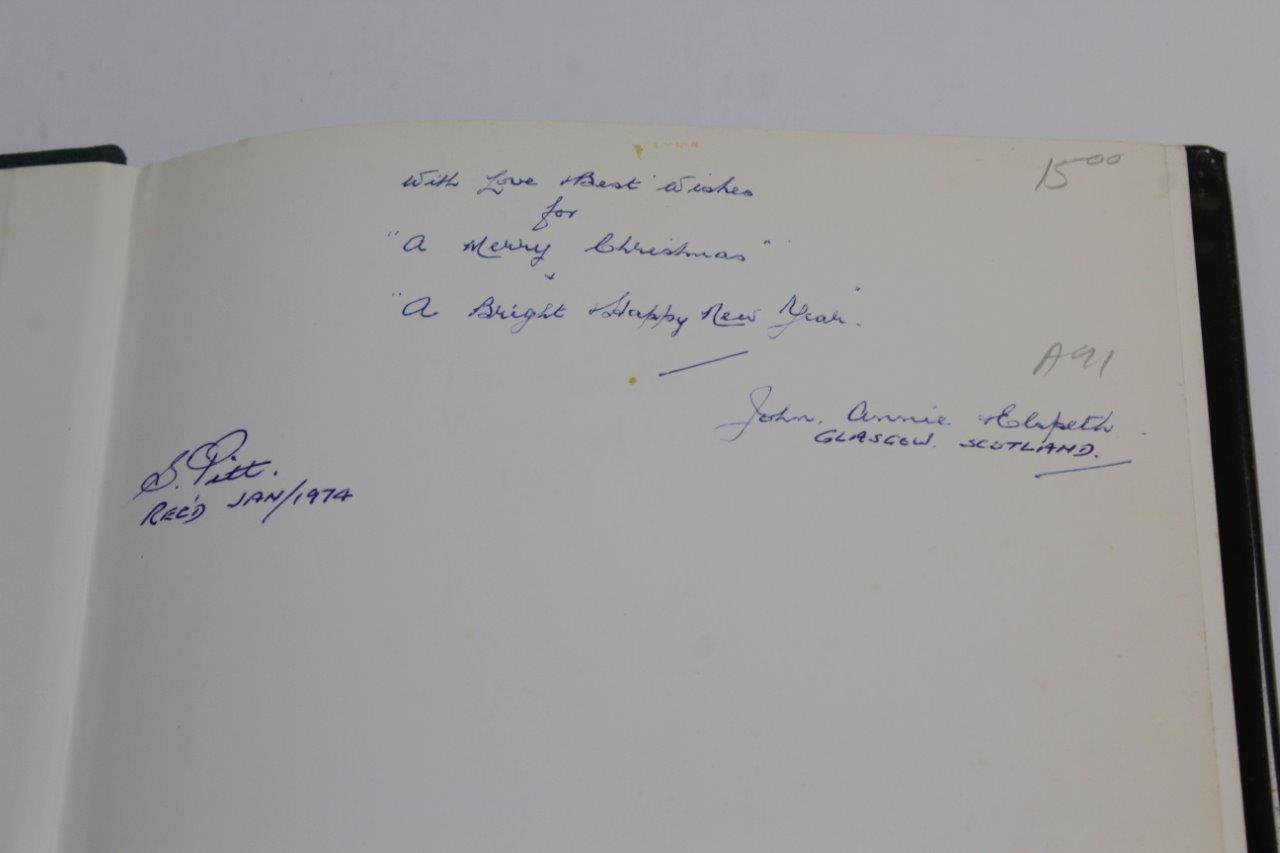 15 00
With Love & Best Wishes
for
"A Merry Christmas"
&
"A Bright & Happy New Year".
A91
John, Annie & Elspeth.
GLASGOW. SCOTLAND.
S. Pitt.
REC'D JAN/1974